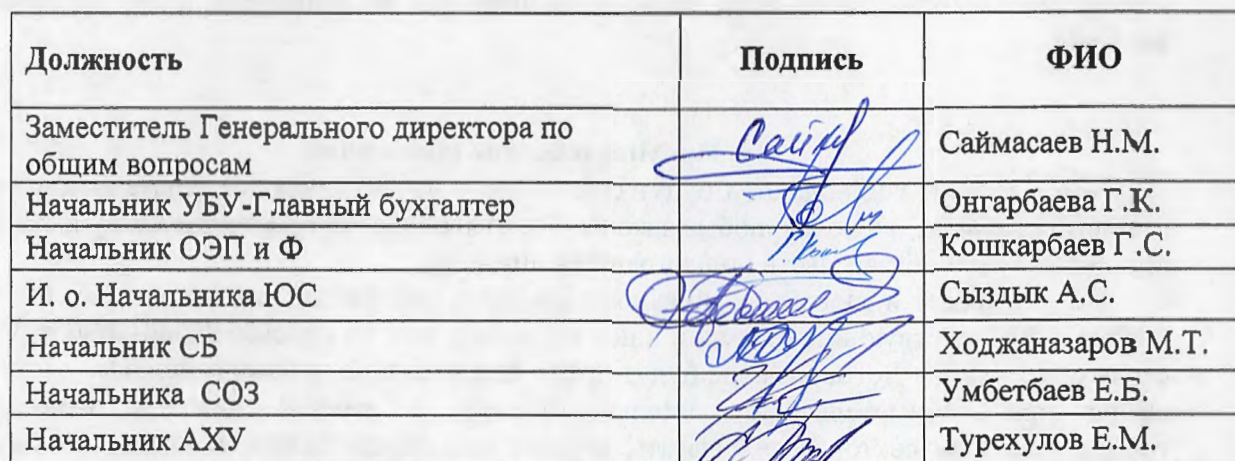 Должность Подпись ФИО
Заместитель Генерального директора по
общим вопросам Саймасаев Н.М.
Начальник УБУ-Главный бухгалтер Онгарбаева Г.К.
Начальник ОЭП и Ф Кошкарбаев Г.С.
И. о. Начальника ЮС Сыздык А.С.
Начальник СБ Ходжаназаров М.Т.
Начальника СОЗ Умбетбаев Е.Б.
Начальник АХУ Турехулов Е.М.